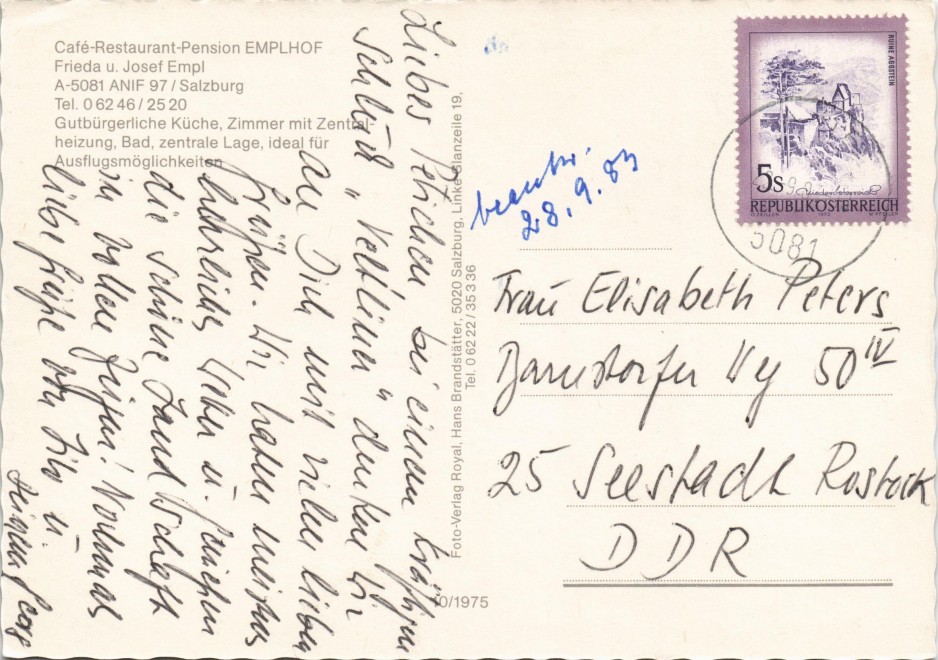 Café-Restaurant-Pension EMPLHOF
Frieda u. Josef Empl
A-5081 ANIF 97 / Salzburg
Tel. 0 62 46 / 25 20
Gutbürgerliche Küche, Zimmer mit Zentral-
heizung, Bad, zentrale Lage, ideal für
Ausflugsmöglichkeiten
Liebes bei einem kräftigen
Schluck „Veltliner“ denken wir
an Dich mit vielen lieben
Grüßen. Wir haben
herrliche u. genießen
die schöne Landschaft
in vollen Zügen! Nochmals
liebe Grüße u.
Foto-Verlag Royal, Hans Brandstätter, 5020 Salzburg, Linke Glanzeile 19,
Tel. 0 62 22 / 35 3 36
10/1975
beantw.
28.9.83
RUINE AGGSTEIN
5s
Niederösterreich
REPUBLIK ÖSTERREICH
5081
Frau Elisabeth Peters
Barnstorfer Weg 50 IV
25 Seestadt Rostock
DDR